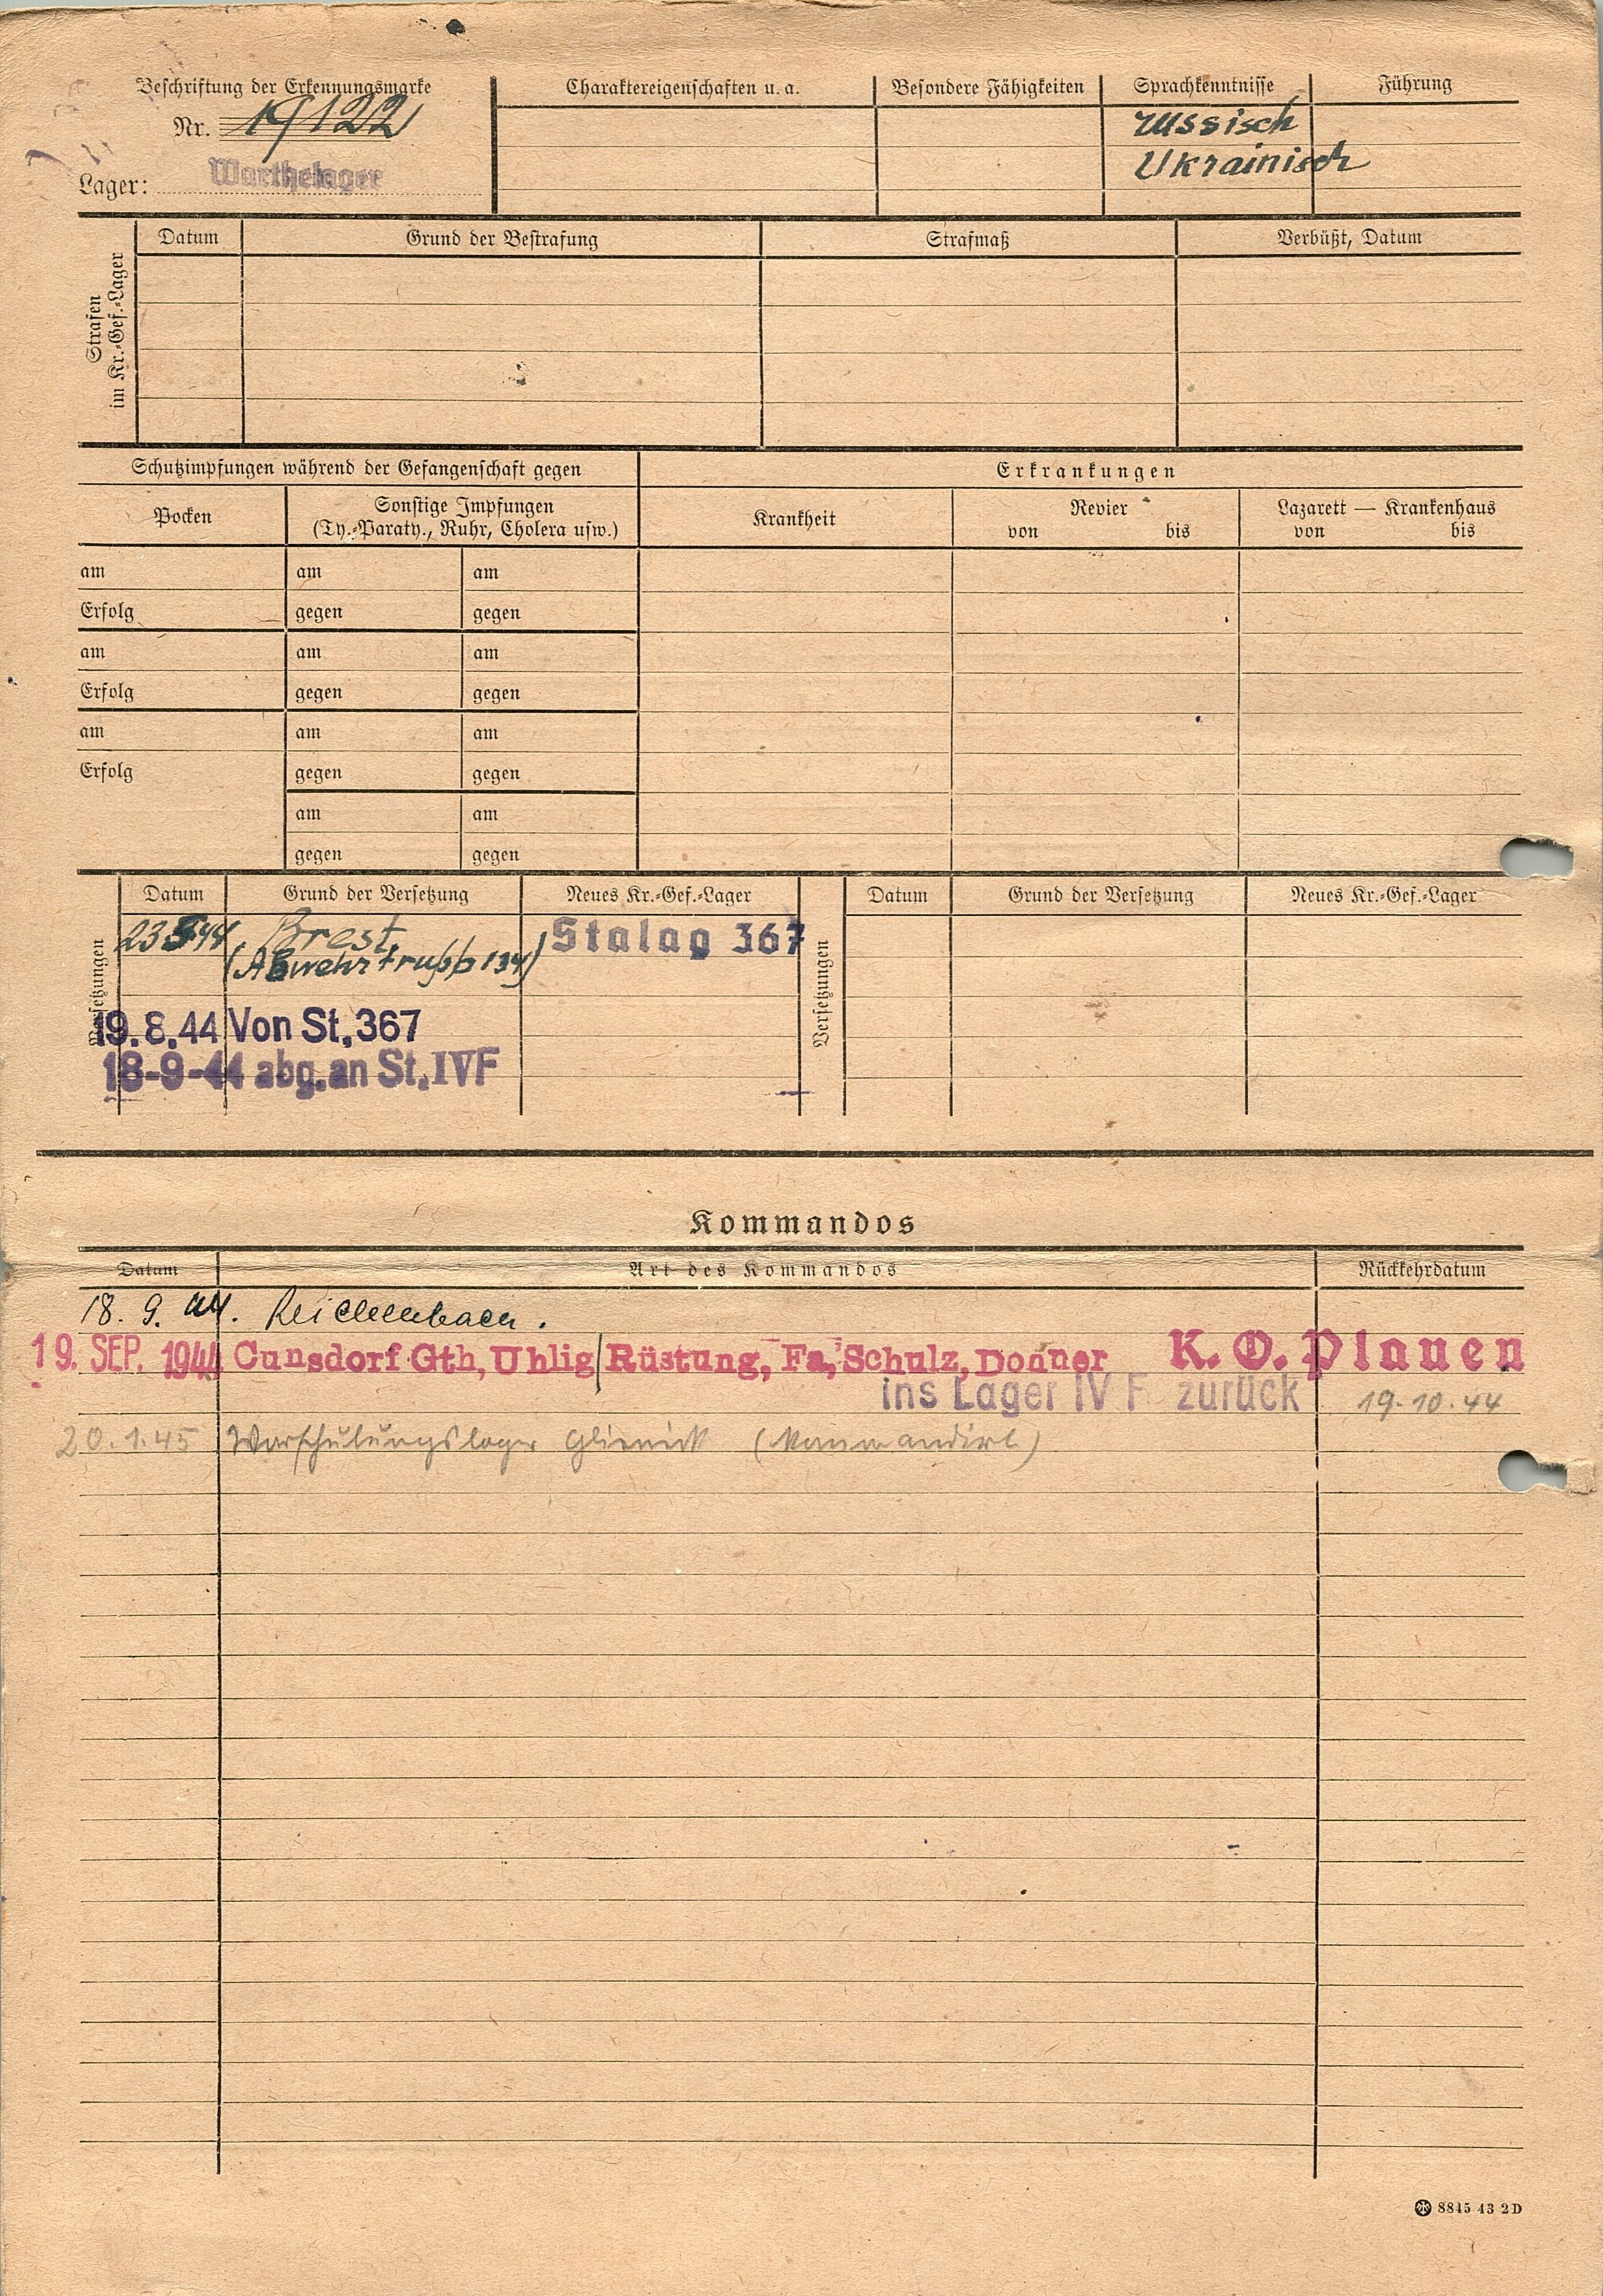 Beschriftung der Erkennungsmarke
Nr. 19122
Lager: Warthelager
Charaktereigenschaften u. a.
Besondere Fähigkeiten
Sprachkenntnisse
russisch
Ukrainisch
Führung
Strafen
im Kr.-Gef.-Lager
Datum Grund der Bestrafung Strafmaß Verbüßt, Datum
Schutzimpfungen während der Gefangenschaft gegen
Pocken
Sonstige Impfungen
(Ty.-Paraty., Ruhr, Cholera usw.)
am am am
Erfolg gegen gegen
am am am
Erfolg gegen gegen
am am am
Erfolg gegen gegen
am am
gegen gegen
Erkrankungen
Krankheit
Revier
von bis
Lazarett — Krankenhaus
von bis
Versetzungen
Datum Grund der Versetzung Neues Kr.-Gef.-Lager
Brest Stalag 367
(Abwehrtrupp 134)
19.8.44 Von St. 367
18-9-44 abg. an St. IVF
Versetzungen
Datum Grund der Versetzung Neues Kr.-Gef.-Lager
Kommandos
Datum Art des Kommandos Rückkehrdatum
18. 9. 44. Reichenbach.
19. SEP. 1944 Cunsdorf Gth, Uhlig/Rüstung, Fa, Schulz, Donner K. O. Plauen
ins Lager IV F zurück 19.10.44
20.1.45 Vorschulungslager Glienick
8845 43 2D